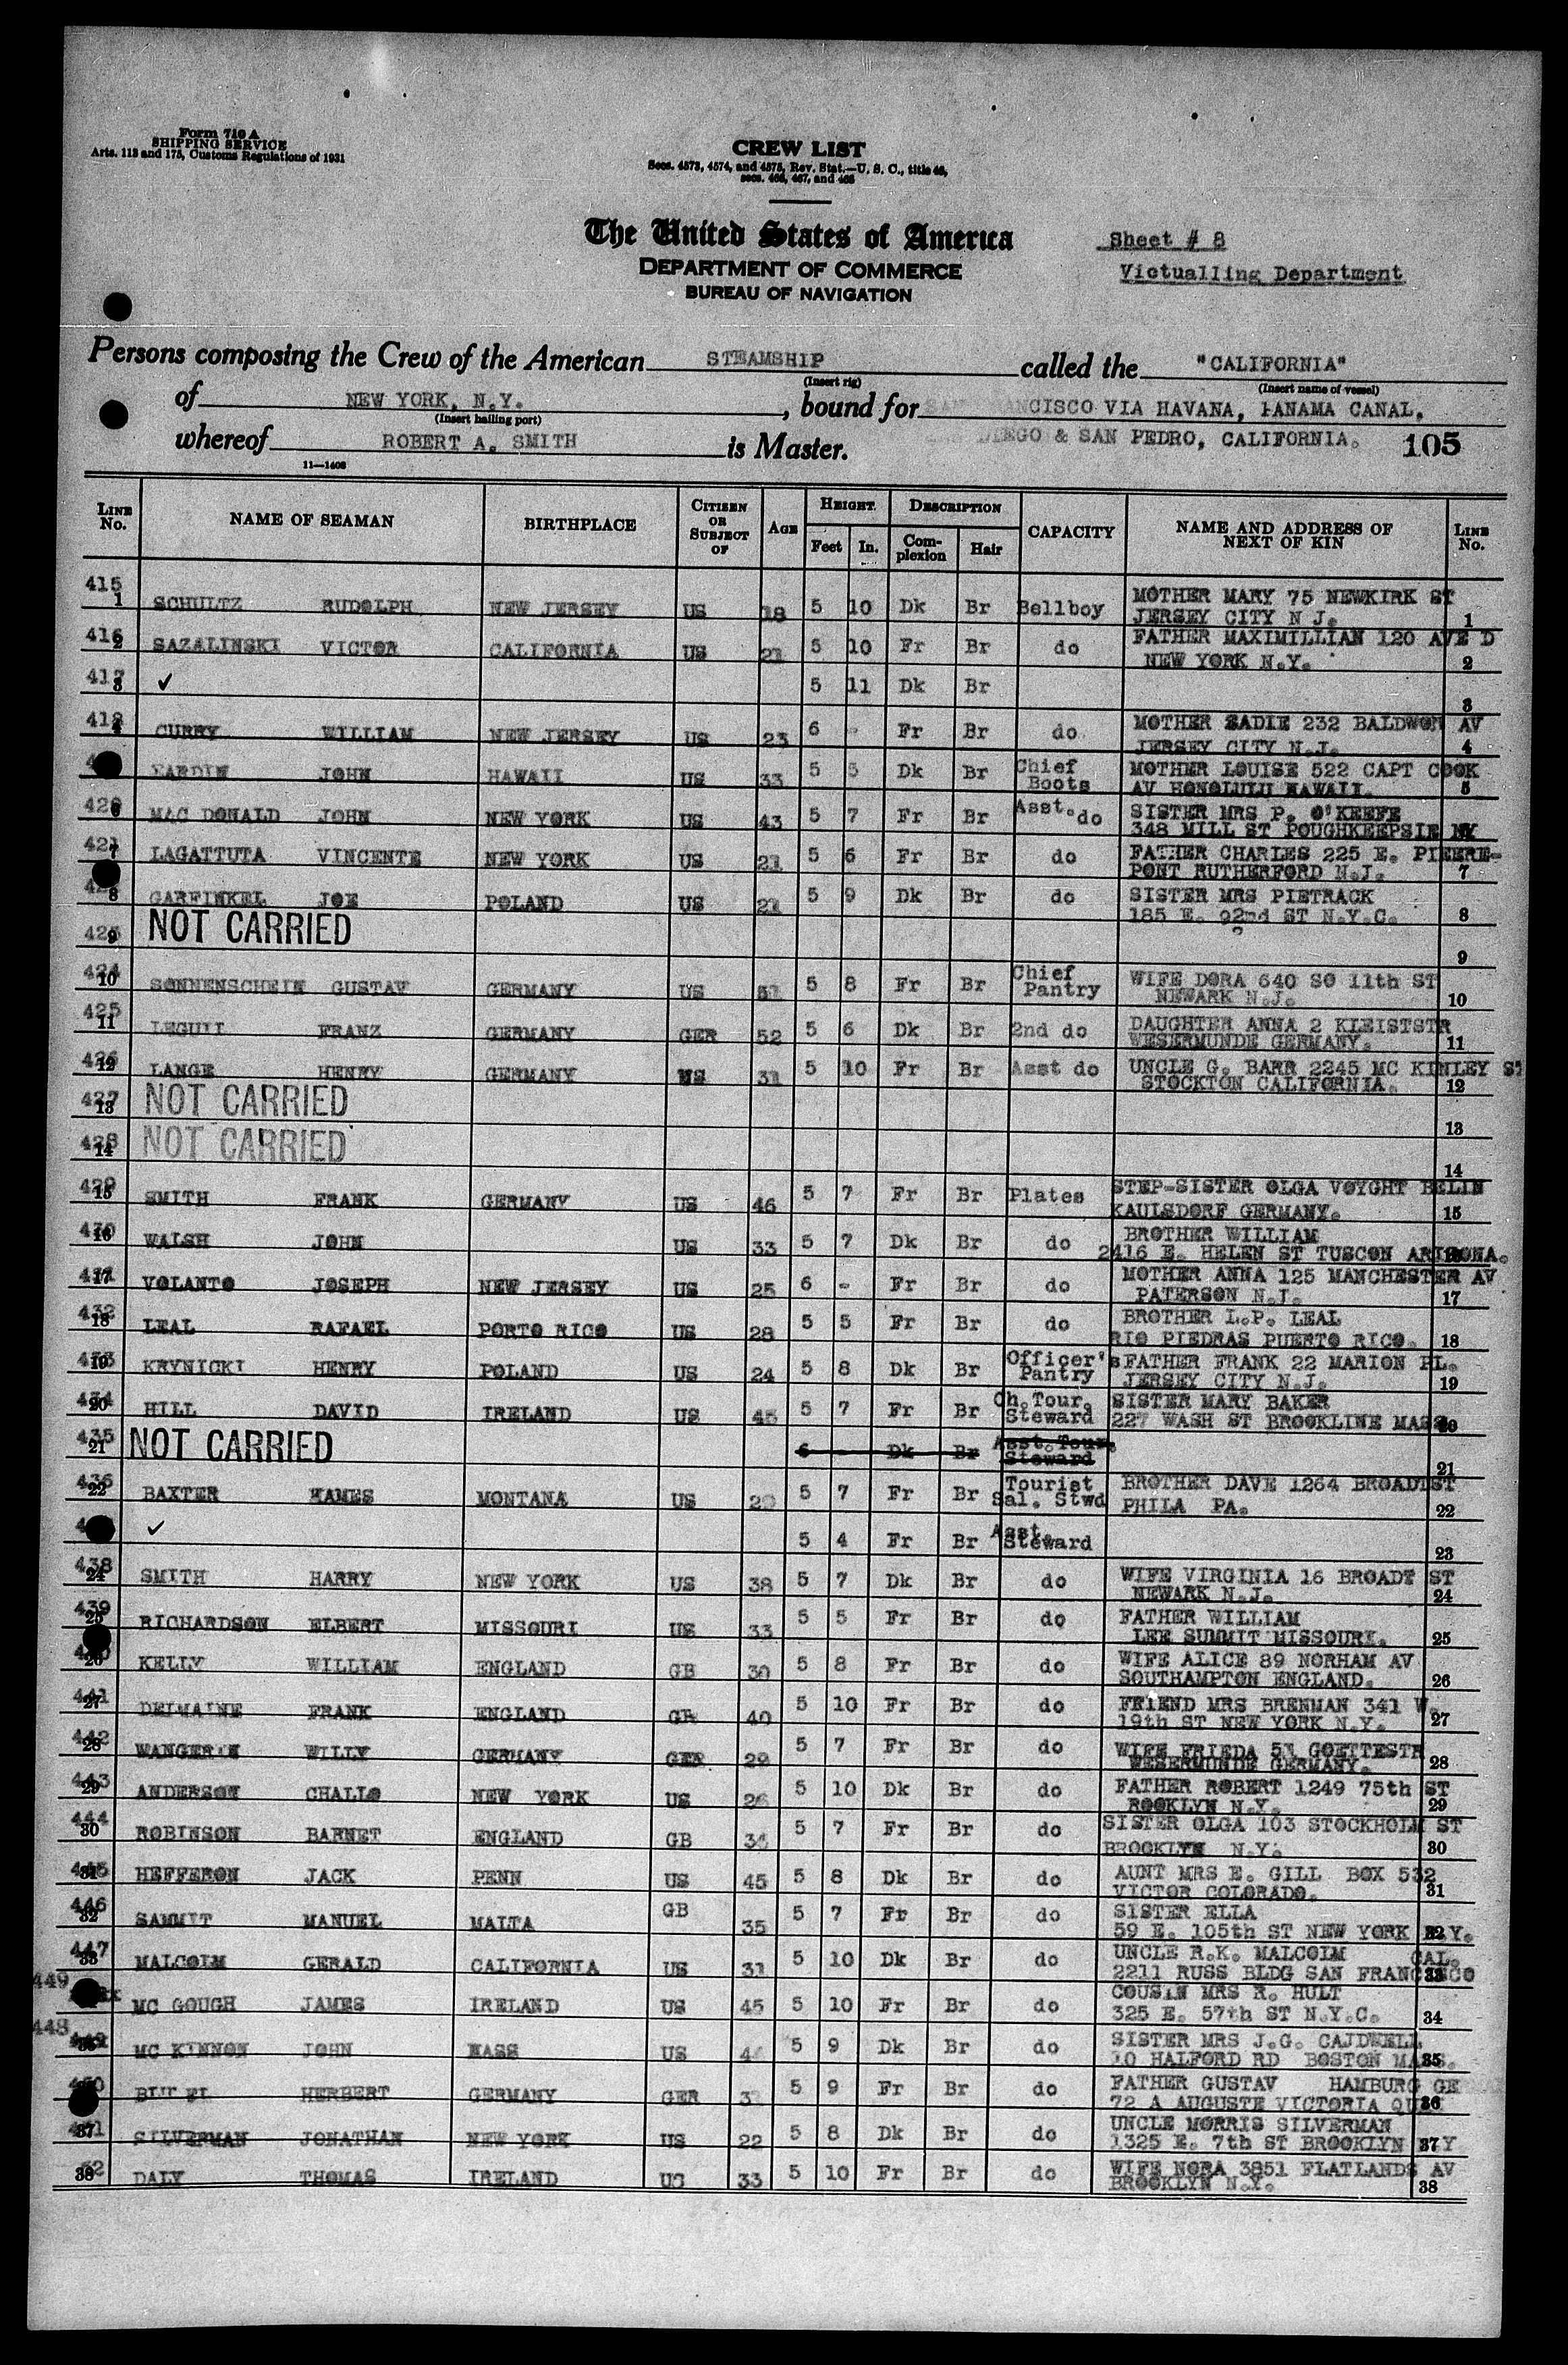 Form 710 A
SHIPPING SERVICE
Arts. 113 and 175, Customs Regulations of 1931
CREW LIST
Secs. 4573, 4574, and 4575, Rev. Stat.—U. S. C., title 46,
secs. 466, 467, and 468
The United States of America
DEPARTMENT OF COMMERCE
BUREAU OF NAVIGATION
Sheet # 8
Victualling Department
Persons composing the Crew of the American STEAMSHIP called the "CALIFORNIA"
(Insert rig) (Insert name of vessel)
of NEW YORK, N.Y., bound for SAN FRANCISCO VIA HAVANA, PANAMA CANAL,
(Insert hailing port)
whereof ROBERT A. SMITH is Master. DIEGO & SAN PEDRO, CALIFORNIA. 105
11—1408
LINE No. NAME OF SEAMAN BIRTHPLACE CITIZEN OR SUBJECT OF AGE HEIGHT Feet In. DESCRIPTION Complexion Hair CAPACITY NAME AND ADDRESS OF NEXT OF KIN LINE No.
415 1 SCHULTZ RUDOLPH NEW JERSEY US 18 5 10 Dk Br Bellboy MOTHER MARY 75 NEWKIRK ST
JERSEY CITY N J. 1
416 2 SAZALINSKI VICTOR CALIFORNIA US 21 5 10 Fr Br do FATHER MAXIMILLIAN 120 AVE D
NEW YORK N.Y. 2
417 3 ✓ 5 11 Dk Br 3
418 4 CURRY WILLIAM NEW JERSEY US 23 6 - Fr Br do MOTHER SADIE 232 BALDWON AV
JERSEY CITY N.J. 4
JOHN HAWAII US 33 5 5 Dk Br Chief Boots MOTHER LOUISE 522 CAPT COOK
AV HONOLULU HAWAII. 5
420 6 MAC DONALD JOHN NEW YORK US 43 5 7 Fr Br Asst. do SISTER MRS P. O'KEEFE
348 MILL ST POUGHKEEPSIE NY
421 7 LAGATTUTA VINCENTE NEW YORK US 21 5 6 Fr Br do FATHER CHARLES 225 E. PIERRE-
PONT RUTHERFORD N.J. 7
8 GARFINKEL JOE POLAND US 21 5 9 Dk Br do SISTER MRS PIETRACK
185 E. 92nd ST N.Y.C. 8
423 9 NOT CARRIED 9
424 10 SONNENSCHEIN GUSTAV GERMANY US 5 8 Fr Br Chief Pantry WIFE DORA 640 SO 11th ST
NEWARK N.J. 10
425 11 FRANZ GERMANY GER 52 5 6 Dk Br 2nd do DAUGHTER ANNA 2 KLEISTSTR
WESERMUNDE GERMANY. 11
426 12 LANGE HENRY GERMANY US 31 5 10 Fr Br Asst do UNCLE G. BARR 2245 MC KINLEY ST
STOCKTON CALIFORNIA. 12
427 13 NOT CARRIED 13
428 14 NOT CARRIED 14
429 15 SMITH FRANK GERMANY US 46 5 7 Fr Br Plates STEP-SISTER OLGA VOYGHT BELIN
KAULSDORF GERMANY. 15
430 16 WALSH JOHN US 33 5 7 Dk Br do BROTHER WILLIAM
2416 E. HELEN ST TUSCON ARIZONA.
431 17 VOLANTO JOSEPH NEW JERSEY US 25 6 - Fr Br do MOTHER ANNA 125 MANCHESTER AV
PATERSON N.J. 17
432 18 LEAL RAFAEL PORTO RICO US 28 5 5 Fr Br do BROTHER L.P. LEAL
RIO PIEDRAS PUERTO RICO. 18
433 19 KRYNICKI HENRY POLAND US 24 5 8 Dk Br Officer's Pantry FATHER FRANK 22 MARION PL.
JERSEY CITY N.J. 19
434 20 HILL DAVID IRELAND US 45 5 7 Fr Br Ch. Tour. Steward SISTER MARY BAKER
227 WASH ST BROOKLINE MASS 20
435 21 NOT CARRIED 6 - Dk Br Asst. Tour. Steward 21
436 22 BAXTER HAMES MONTANA US 5 7 Fr Br Tourist Sal. Stwd BROTHER DAVE 1264 BROADTST
PHILA PA. 22
✓ 5 4 Fr Br Asst. Steward 23
438 24 SMITH HARRY NEW YORK US 38 5 7 Dk Br do WIFE VIRGINIA 16 BROADT ST
NEWARK N.J. 24
439 25 RICHARDSON ELBERT MISSOURI US 33 5 5 Fr Br do FATHER WILLIAM
LEE SUMMIT MISSOURI. 25
26 KELLY WILLIAM ENGLAND GB 30 5 8 Fr Br do WIFE ALICE 89 NORHAM AV
SOUTHAMPTON ENGLAND. 26
441 27 DELMAINE FRANK ENGLAND GB 40 5 10 Fr Br do FRIEND MRS BRENMAN 341 W.
19th ST NEW YORK N.Y. 27
442 28 WANGERIN WILLY GERMANY GER 29 5 7 Fr Br do WIFE FRIEDA 53 GOETTESTR
WESERMUNDE GERMANY. 28
443 29 ANDERSON CHALLO NEW YORK US 26 5 10 Dk Br do FATHER ROBERT 1249 75th ST
ROOKLYN N.Y. 29
444 30 ROBINSON BARNET ENGLAND GB 5 7 Fr Br do SISTER OLGA 103 STOCKHOLM ST
BROOKLYN N.Y. 30
445 31 HEFFERON JACK PENN US 45 5 8 Dk Br do AUNT MRS E. GILL BOX 532
VICTOR COLORADO. 31
446 32 SAMMIT MANUEL MALTA GB 35 5 7 Fr Br do SISTER ELLA
59 E. 105th ST NEW YORK N.Y. 32
447 33 MALCOLM GERALD CALIFORNIA US 31 5 10 Dk Br do UNCLE R.K. MALCOLM CAL.
2211 RUSS BLDG SAN FRANCISCO 33
449 MC GOUGH JAMES IRELAND US 45 5 10 Fr Br do COUSIN MRS R. HULT
325 E. 57th ST N.Y.C. 34
448 MC KINNON JOHN MASS US 5 9 Dk Br do SISTER MRS J.G. CALDWELL
10 HALFORD RD BOSTON MASS. 35
HERBERT GERMANY GER 5 9 Fr Br do FATHER GUSTAV HAMBURG GE
72 A AUGUSTE VICTORIA 36
37 SILVERMAN JONATHAN NEW YORK US 22 5 8 Dk Br do UNCLE MORRIS SILVERMAN
1325 E. 7th ST BROOKLYN NY 37
38 DALY THOMAS IRELAND US 33 5 10 Fr Br do WIFE NORA 3851 FLATLANDS AV
BROOKLYN N.Y. 38